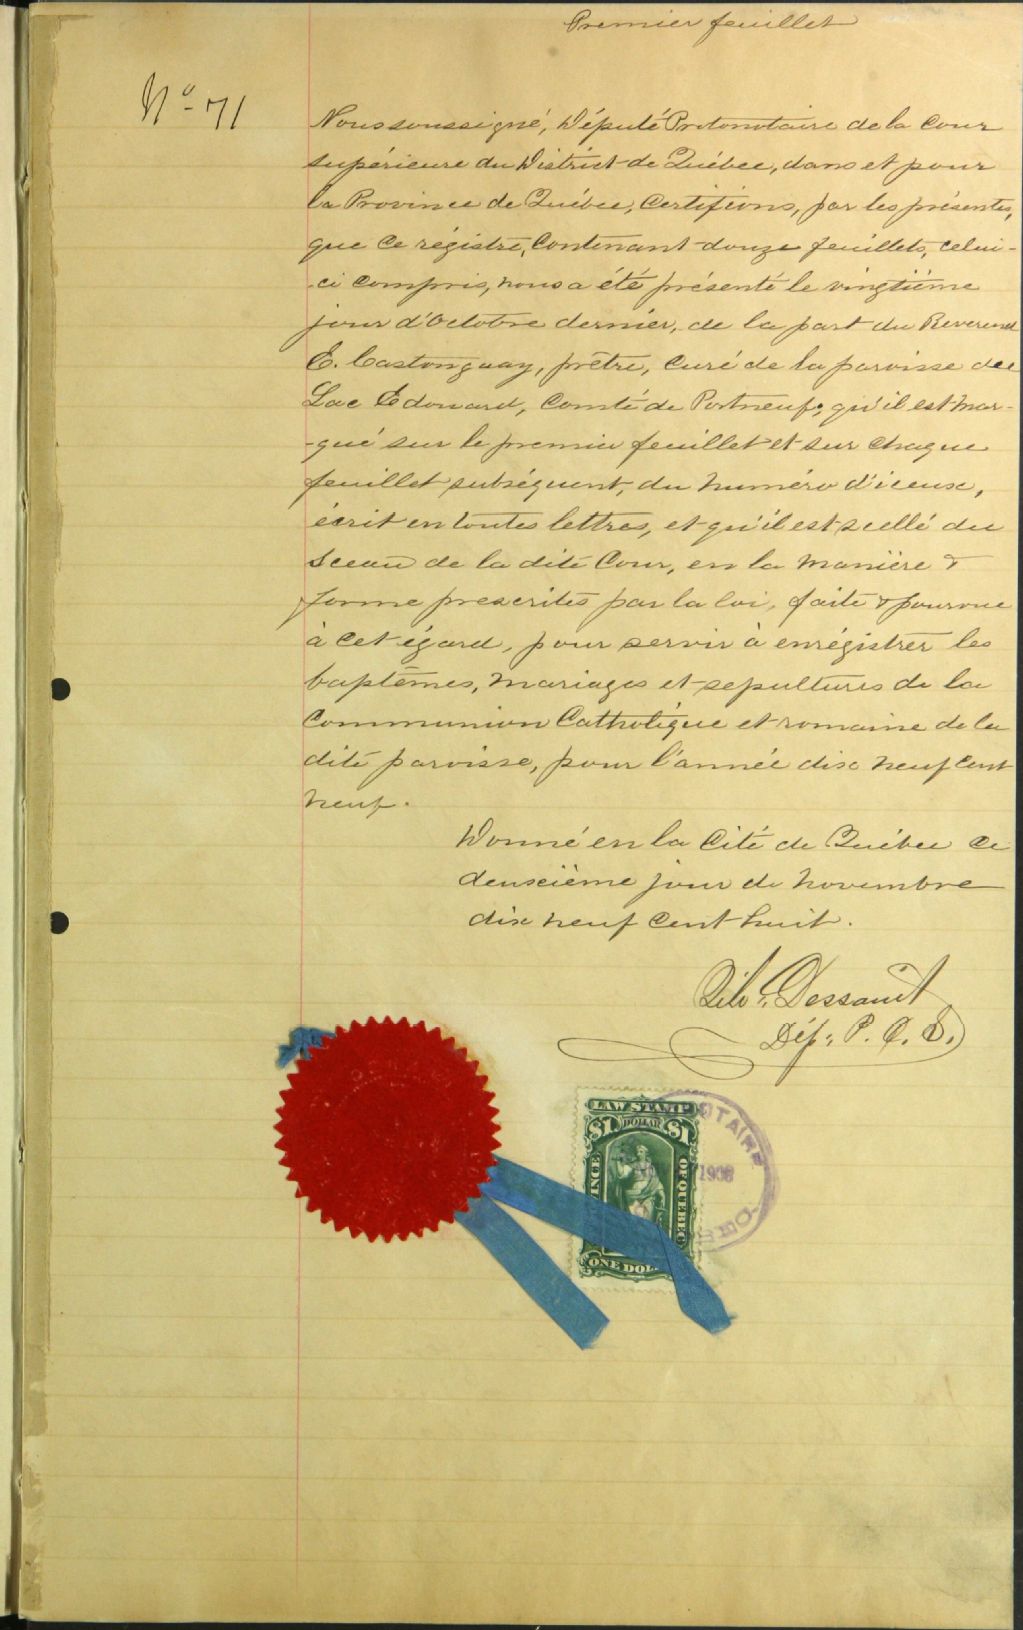 Premier feuillet
No 71
Nous soussigné, Député Protonotaire de la Cour
supérieure du District de Québec, dans et pour
la Province de Québec, Certifions, par les présentes,
que ce régistre, Contenant douze feuillets, celui-
-ci compris, nous a été présenté le vingtième
jour d'Octobre dernier, de la part du Reverend
E. Castonguay, prêtre, Curé de la paroisse de
Lac Edouard, Comté de Portneuf; qu'il est mar-
-qué sur le premier feuillet et sur Chaque
feuillet subséquent, du numéro d'iceux,
écrit en toutes lettres, et qu'il est scellé du
Sceau de la dite Cour, en la manière &
forme prescrites par la loi, faite & pourvue
à cet égard, pour servir à enrégistrer les
baptêmes, mariages et sepultures de la
Communion Catholique et romaine de la
dite paroisse, pour l'année dix neuf Cent
neuf.
Donné en la Cité de Québec ce
deuxième jour de novembre
dix neuf Cent huit.
Dessault
Dép. P. C. S.
LAW STAMP
$1 DOLLAR $1
OF QUEBEC
ONE DOL
1908